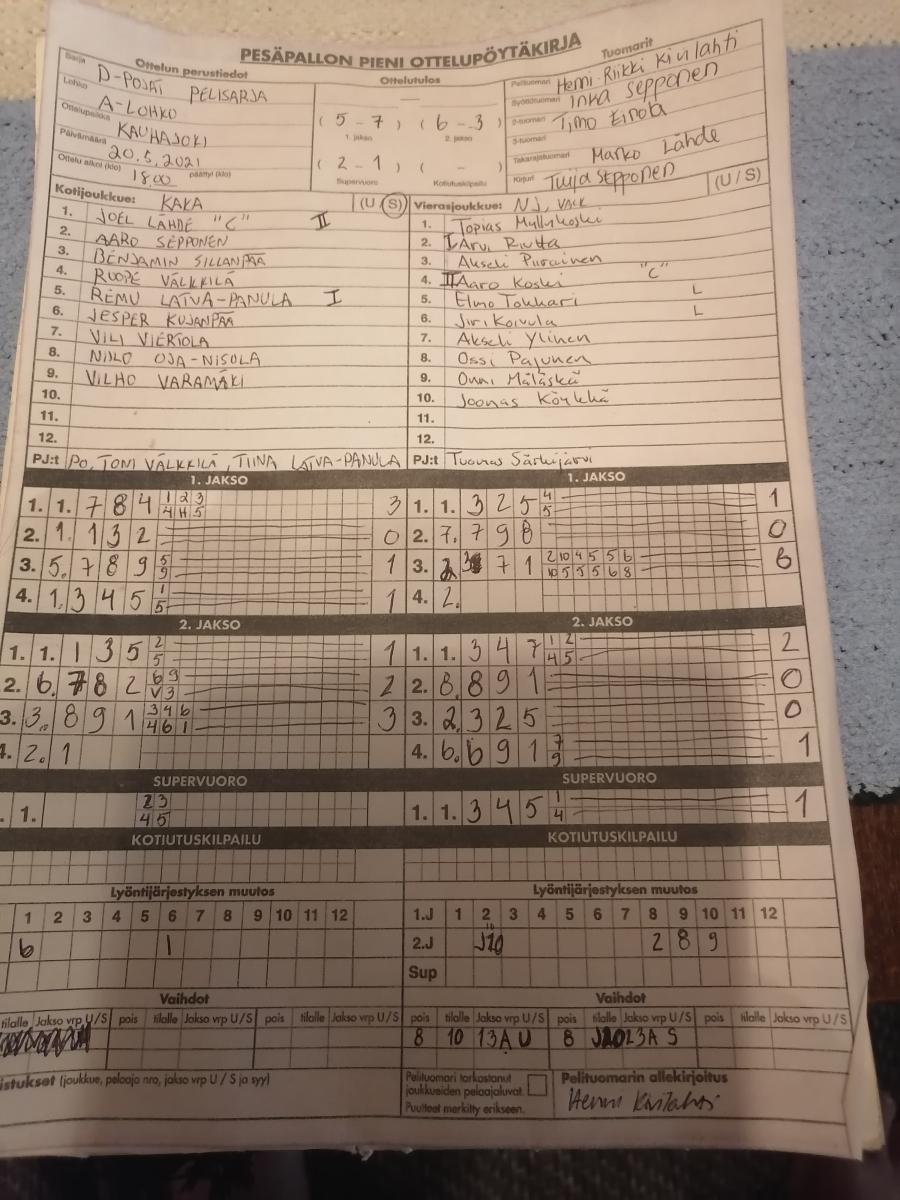 PESÄPALLON PIENI OTTELUPÖYTÄKIRJA
Ottelun perustiedot
Sarja D-POJAT PELISARJA
Lohko A-LOHKO
Ottelupaikka KAUHAJOKI
Päivämäärä 20.5.2021
Ottelu alkoi (klo) 18.00 päättyi (klo)
Ottelutulos
( 5 - 7 ) ( 6 - 3 )
1. jakso 2. jakso
( 2 - 1 ) ( - )
Supervuoro Kotiutuskilpailu
Tuomarit
Pelituomari Henni-Riikki Kivilahti
Syöttötuomari Inka Sepponen
2-tuomari Timo Einola
3-tuomari
Takarajatuomari Marko Lähde
Kirjuri Tuija Sepponen
Kotijoukkue: KAKA (U / S)
1. JOEL LÄHDE "C" II
2. AARO SEPPONEN
3. BENJAMIN SILLANPÄÄ
4. ROOPE VÄLKKILÄ
5. REMU LATVA-PANULA I
6. JESPER KUJANPÄÄ
7. VILI VIERTOLA
8. NIILO OJA-NISULA
9. VILHO VARAMÄKI
10.
11.
12.
PJ:t PO, TONI VÄLKKILÄ, TIINA LATVA-PANULA
Vierasjoukkue: NJ, VALK (U / S)
1. Topias Myllykoski
2. I Arvi Riutta
3. Akseli Piirainen
4. II Aaro Koski "C"
5. Elmo Tokkari L
6. Jiri Koivula L
7. Akseli Ylinen
8. Ossi Pajunen
9. Onni Mäläskä
10. Joonas Köykkä
11.
12.
PJ:t Tuomas Särkijärvi
1. JAKSO
1. 1. 7 8 4 1 2 3 3
4 H 5
2. 1. 1 3 2 0
3. 5. 7 8 9 5 1
9
4. 1. 3 4 5 1 1
5
1. JAKSO
1. 1. 3 2 5 4 1
5
2. 7. 7 9 8 0
3. 2. 3 7 1 2 10 4 5 5 6 6
10 5 5 5 6 8
4. 2.
2. JAKSO
1. 1. 1 3 5 2 1
5
2. 6. 7 8 2 6 9 2
V 3
3. 3. 8 9 1 3 4 6 3
4 6 1
4. 2. 1
2. JAKSO
1. 1. 3 4 7 1 2 2
4 5
2. 8. 8 9 1 0
3. 2. 3 2 5 0
4. 6. 6 9 1 7 1
9
SUPERVUORO
1. 2 3
4 5
SUPERVUORO
1. 1. 3 4 5 1 1
4
KOTIUTUSKILPAILU
KOTIUTUSKILPAILU
Lyöntijärjestyksen muutos
1 2 3 4 5 6 7 8 9 10 11 12
6 1
Lyöntijärjestyksen muutos
1.J 1 2 3 4 5 6 7 8 9 10 11 12
2.J J10 2 8 9
Sup
Vaihdot
tilalle Jakso vrp U/S pois tilalle Jakso vrp U/S pois tilalle Jakso vrp U/S
Vaihdot
pois tilalle Jakso vrp U/S pois tilalle Jakso vrp U/S pois tilalle Jakso vrp U/S
8 10 13A U 8 S
istukset (joukkue, pelaaja nro, jakso vrp U / S ja syy)
Pelituomari tarkastanut
joukkueiden pelaajaluvat.
Puutteet merkitty erikseen.
Pelituomarin allekirjoitus
Henni Kivilahti